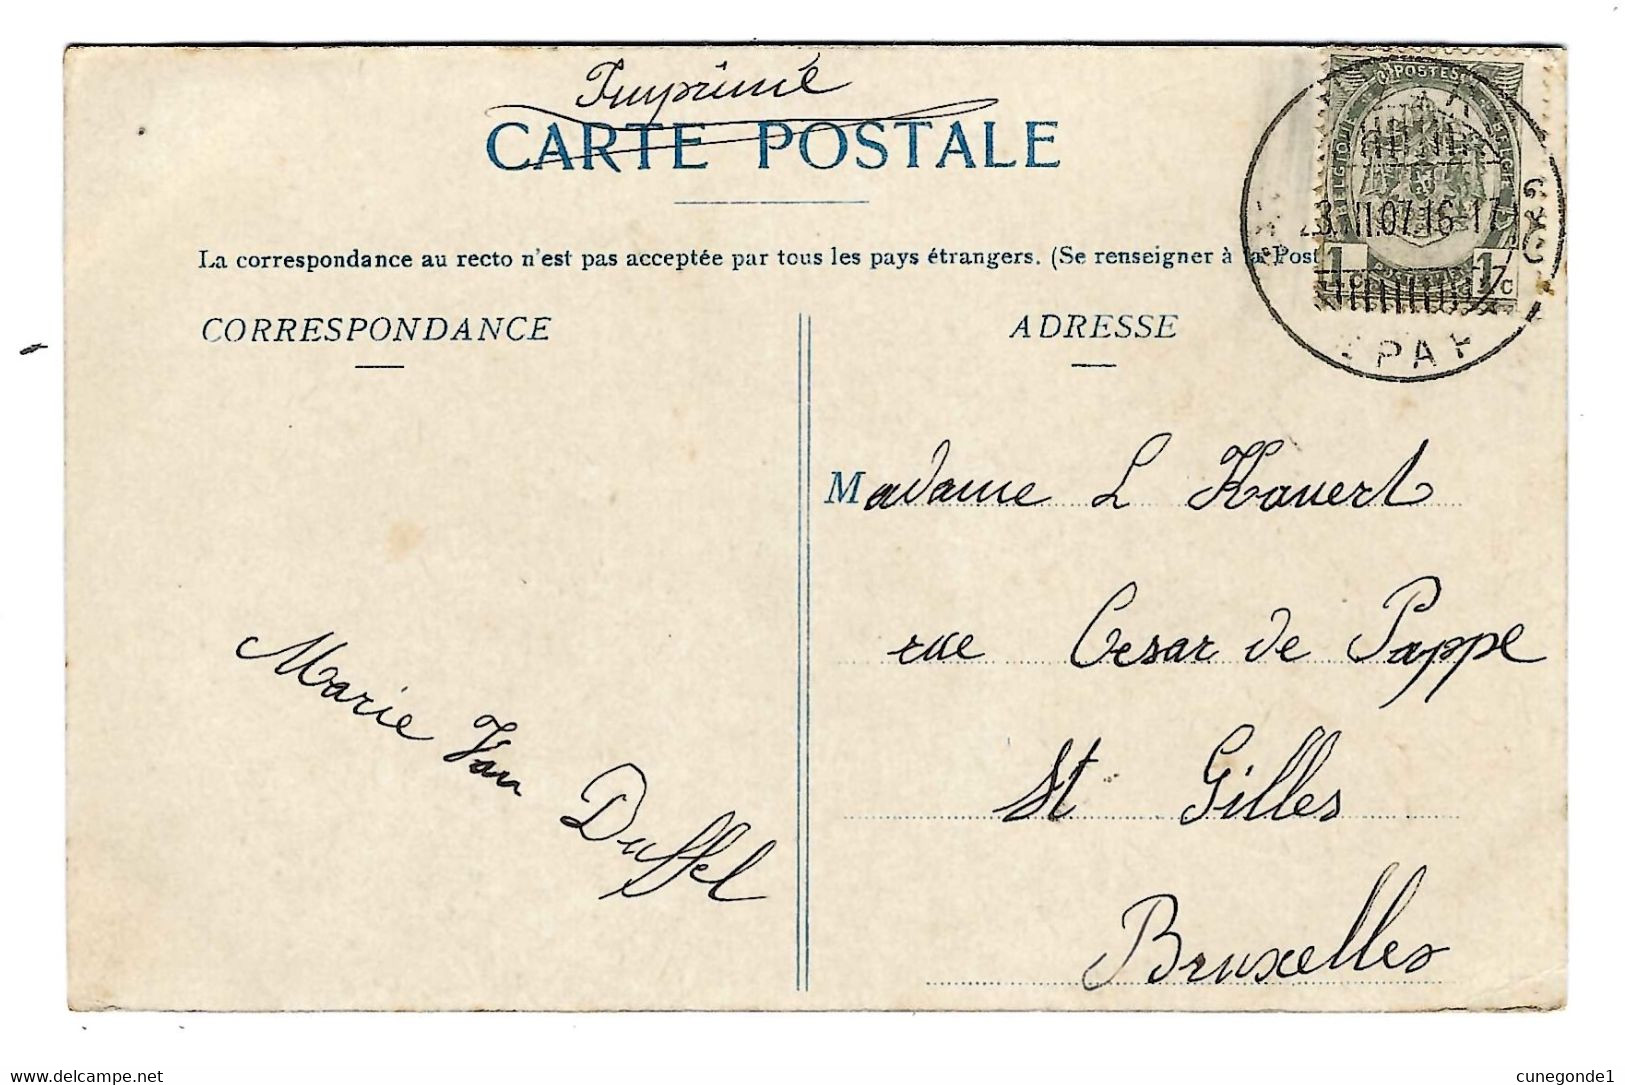 Imprimé
CARTE POSTALE
La correspondance au recto n'est pas acceptée par tous les pays étrangers. (Se renseigner à la Post
CORRESPONDANCE
ADRESSE
POSTES
BELGIQUE
BELGIË
3.VII.07.16-17
1 C
1 C
Madame L Havert
rue Cesar de Pappe
St Gilles
Bruxelles
Marie Van Duffel
www.delcampe.net
cunegonde1